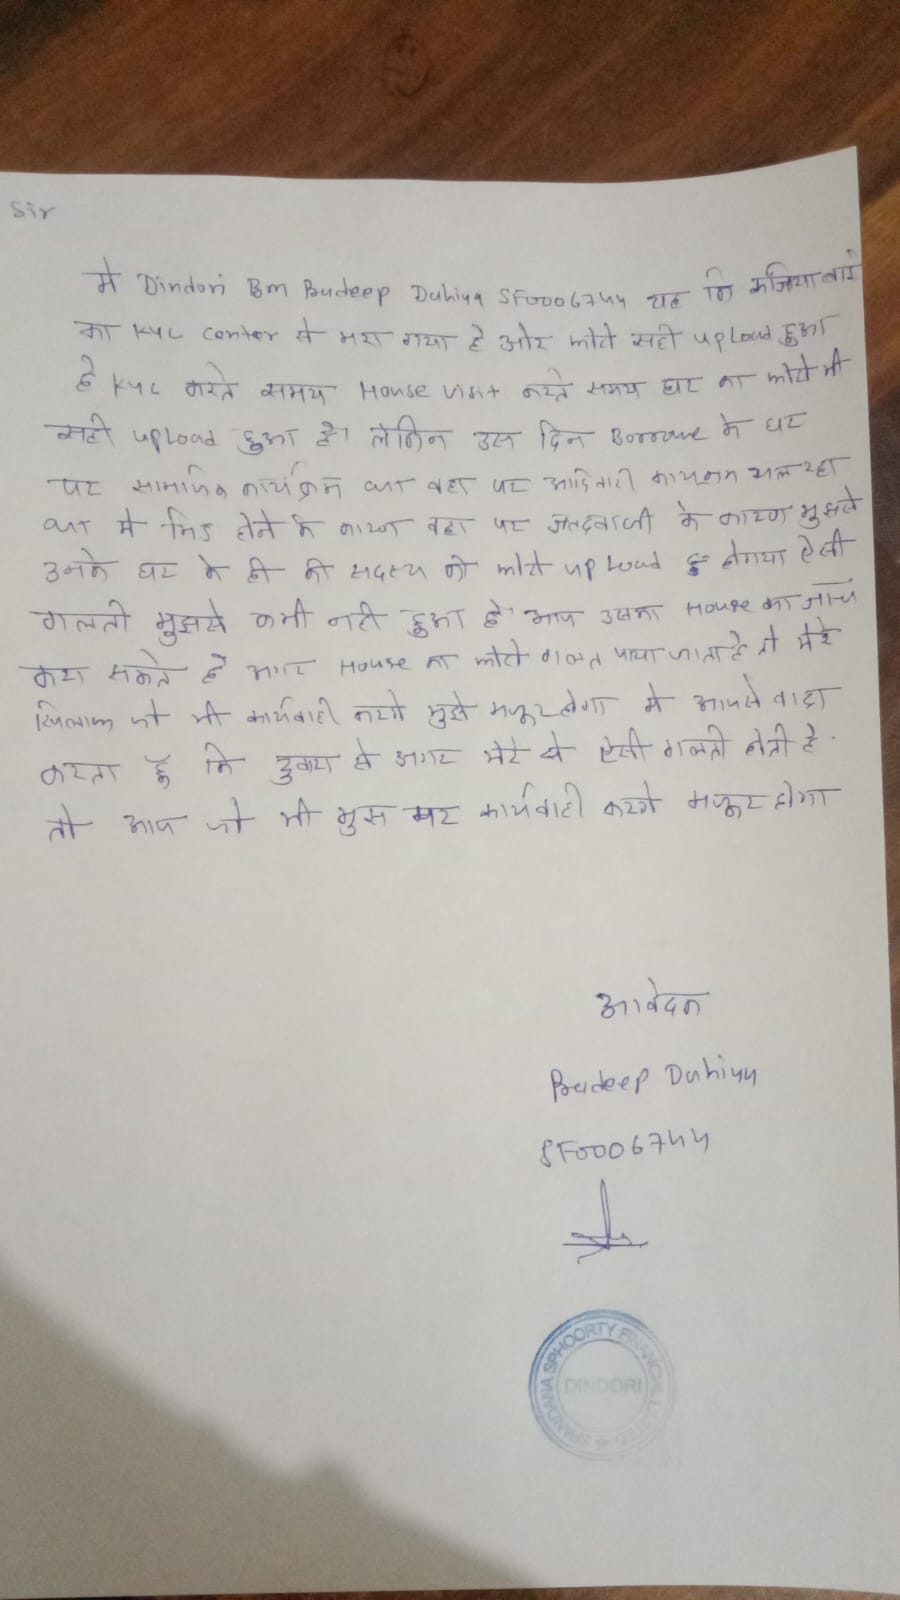 Sir
मे Dindori Bm Pradeep Dahiya SF0006744 यह कि कजिया बाई
का KYC Center से भरा गया है और फोटो सही upload हुआ
है KYC करते समय House visit करते समय घर का फोटो भी
सही upload हुआ है। लेकिन उस दिन Borrower के घर
पर सामाजिक कार्यक्रम था वहा पर आदिवादी कायक्रम चल रहा
था मे भिड होने के कारण वहा पर जल्दबाजी के कारण मुझसे
उनके घर के ही की सदस्य की फोटो upload होगया ऐसी
गलती मुझसे कभी नही हुआ है आप उसका House का जांच
करा सकते है अगर House का फोटो गलत पाया जाता है तो मेरे
खिलाफ जो भी कार्यवाही करगे मुझे मंजूर होगा मे आपसे वादा
करता हूँ कि दुबारा से अगर मेरे से ऐसी गलती होती है.
तो आप जो भी मुझ पर कार्यवाही करगे मंजूर होगा
आवेदक
Pradeep Dahiya
SF0006744
SPANDANA SPHOORTY FINANCIAL LIMITED
DINDORI